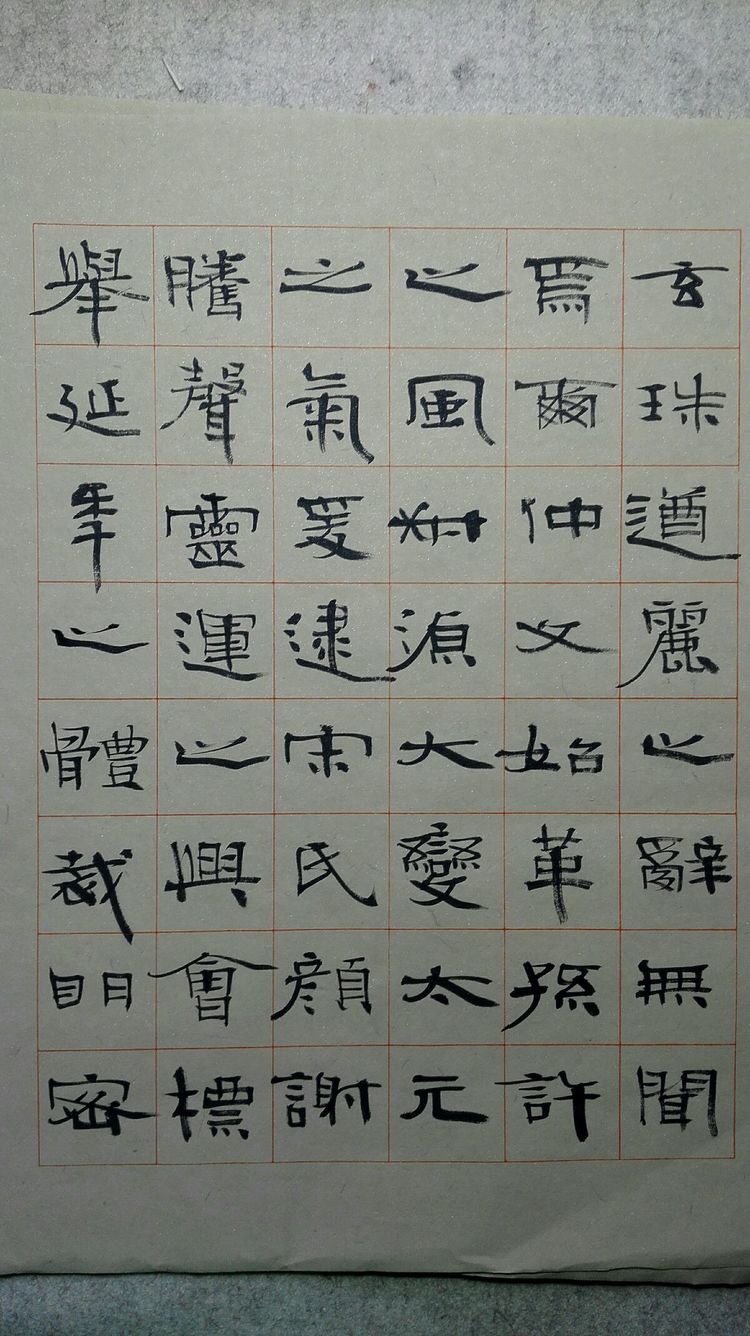 玄珠遒麗之辭無聞
焉爾仲文始革孫許
之風叔源大變太元
之氣爰逮宋氏顏謝
騰聲靈運之興會標
舉延年之體裁明密